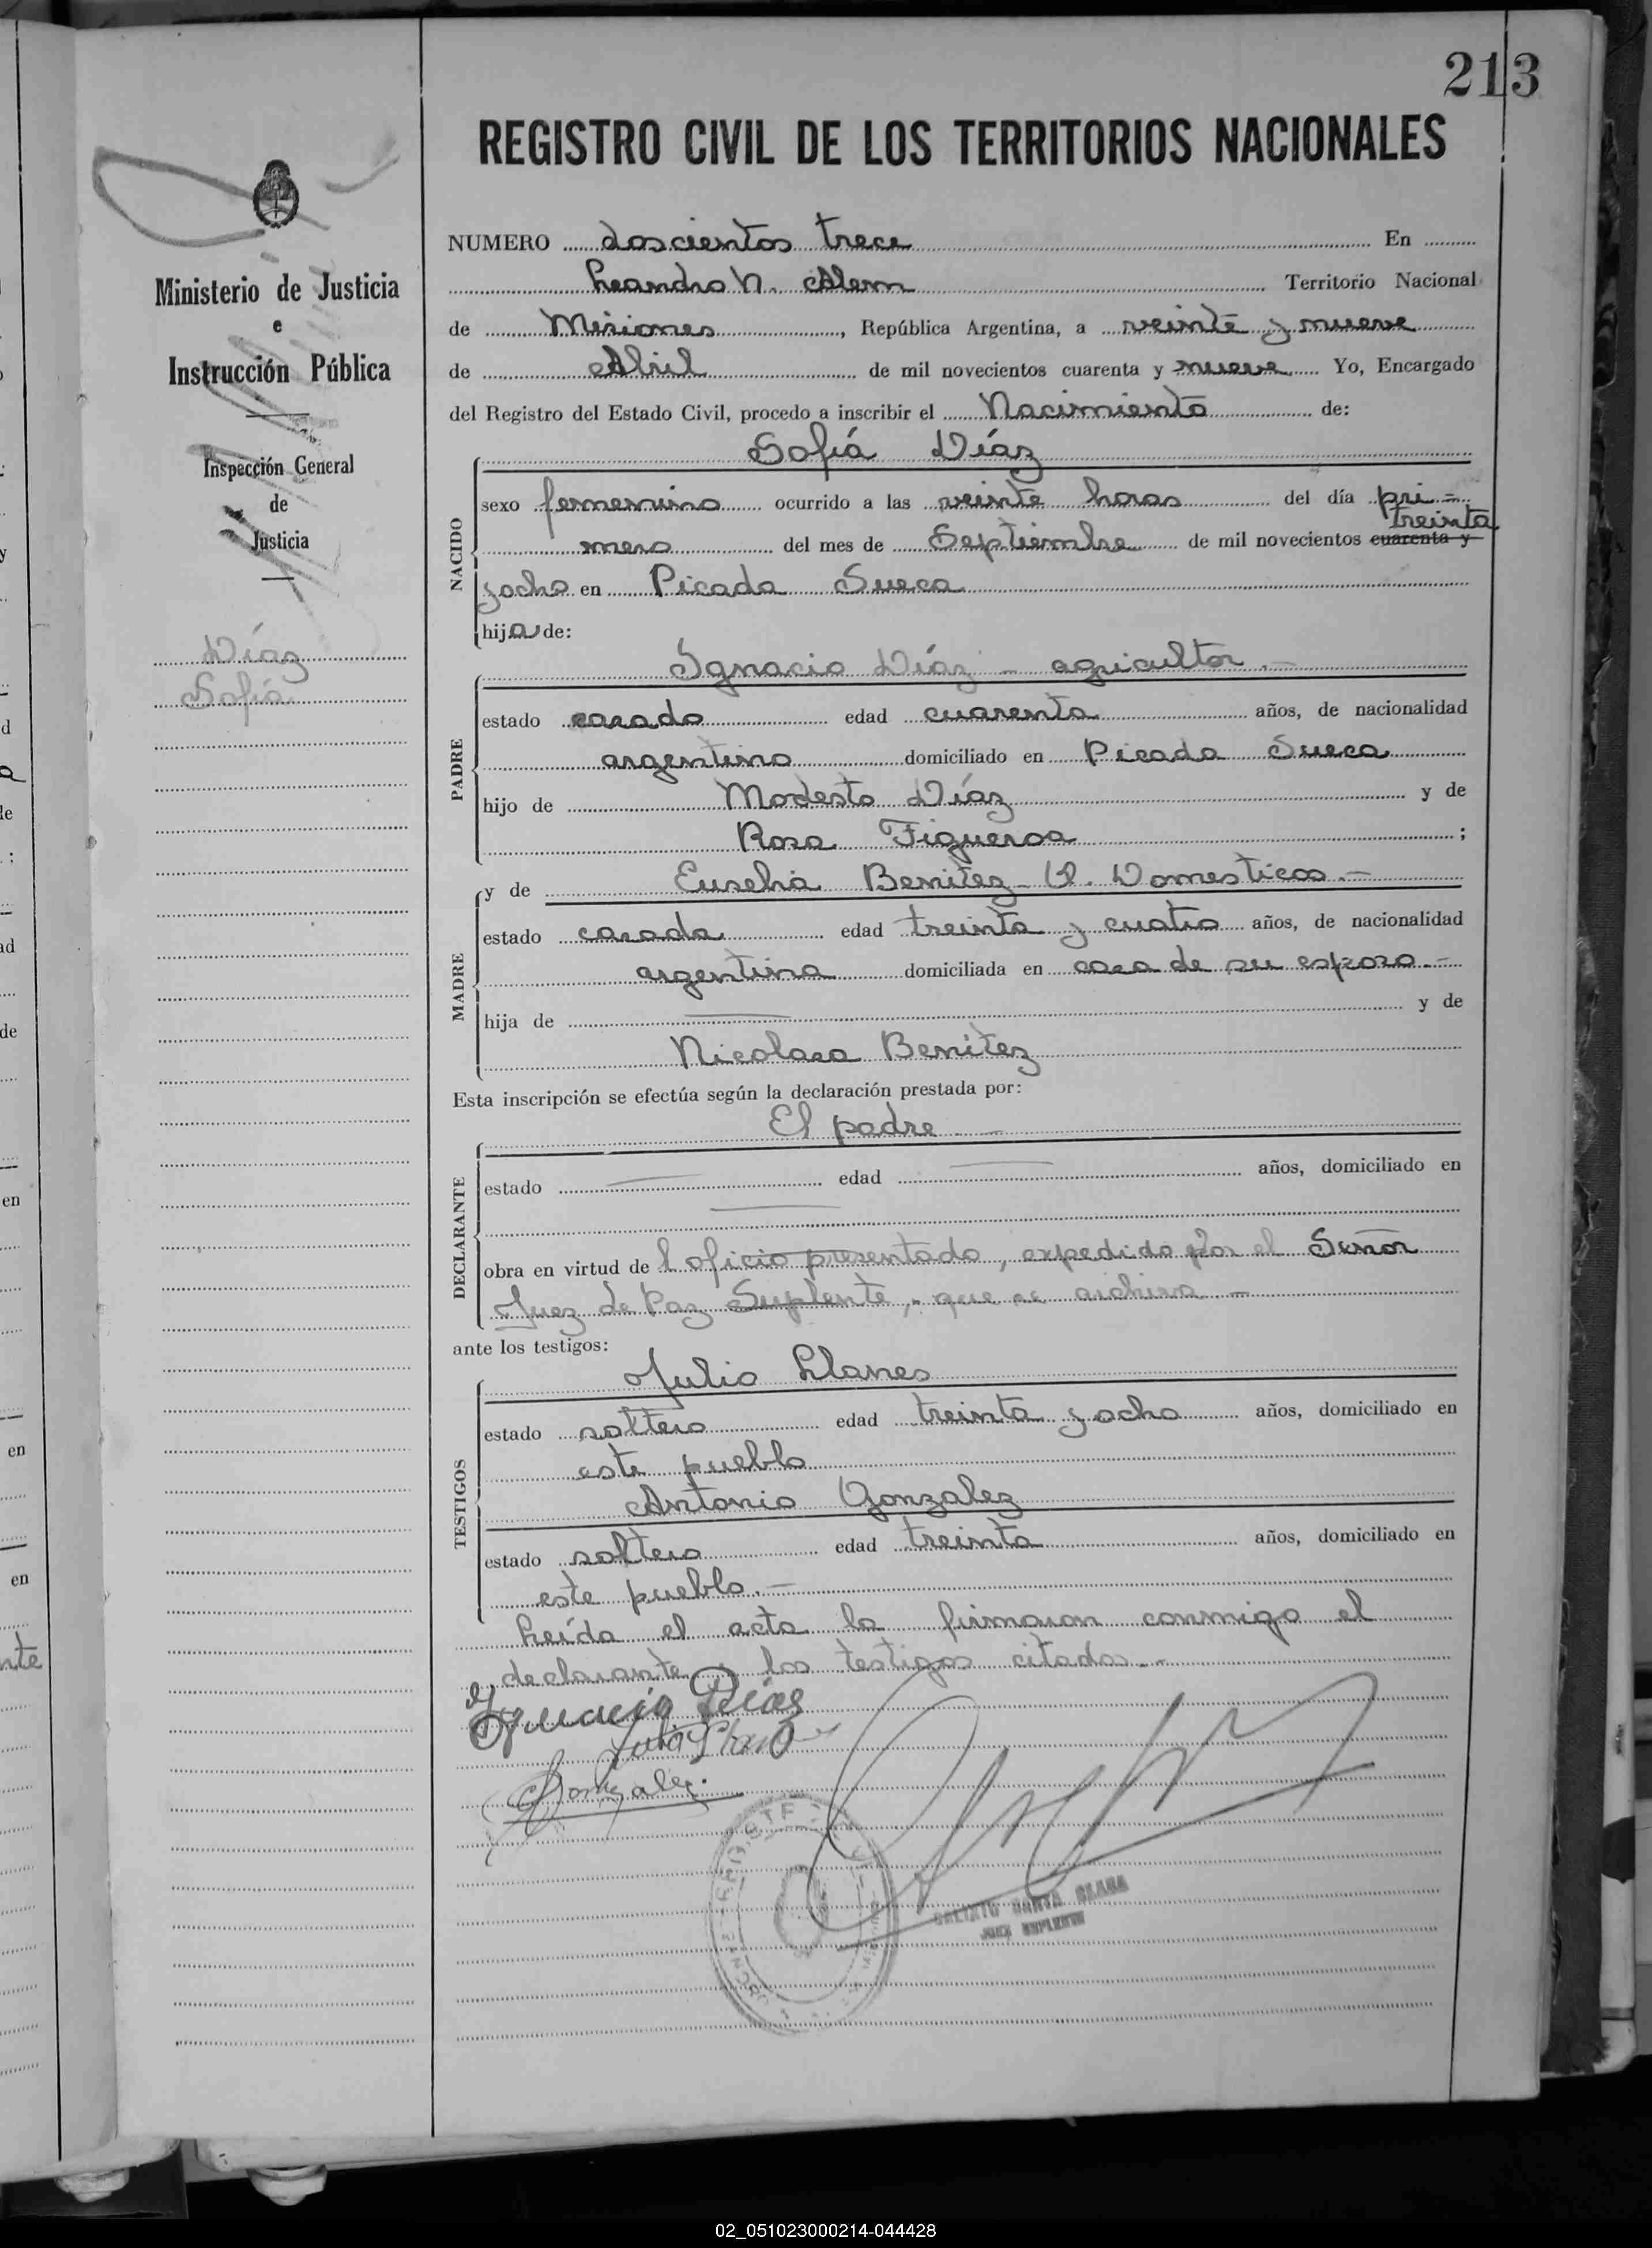 213
REGISTRO CIVIL DE LOS TERRITORIOS NACIONALES
Ministerio de Justicia
e
Instrucción Pública
Inspección General
de
Justicia
Díaz
Sofía
NUMERO doscientos trece En
Leandro N. Alem Territorio Nacional
de Misiones, República Argentina, a veinte y nueve
de Abril de mil novecientos cuarenta y nueve Yo, Encargado
del Registro del Estado Civil, procedo a inscribir el Nacimiento de:
Sofiá Díaz
NACIDO
sexo femenino ocurrido a las veinte horas del día pri=
treinta
mero del mes de Septiembre de mil novecientos cuarenta y
y ocho en Picada Sueca
hija de:
Ignacio Díaz - agricultor.-
PADRE
estado casado edad cuarenta años, de nacionalidad
argentino domiciliado en Picada Sueca
hijo de Modesto Díaz y de
Rosa Figueroa;
y de Eusebia Benitez - Q. Domesticos.-
MADRE
estado casada edad treinta y cuatro años, de nacionalidad
argentina domiciliada en casa de su esposo.-
hija de y de
Nicolasa Benitez
Esta inscripción se efectúa según la declaración prestada por:
El padre
DECLARANTE
estado edad años, domiciliado en
obra en virtud de l oficio presentado, expedido por el Señor
Juez de Paz Suplente, que se archiva -
ante los testigos:
Julio Llanes
TESTIGOS
estado soltero edad treinta y ocho años, domiciliado en
este pueblo
Antonio Gonzalez
estado soltero edad treinta años, domiciliado en
este pueblo.-
Leída el acta la firmaron conmigo el
declarante y los testigos citados.-
Ignacio Díaz
Gonzalez.
SANTA
JUEZ SUPLENTE
02_051023000214-044428